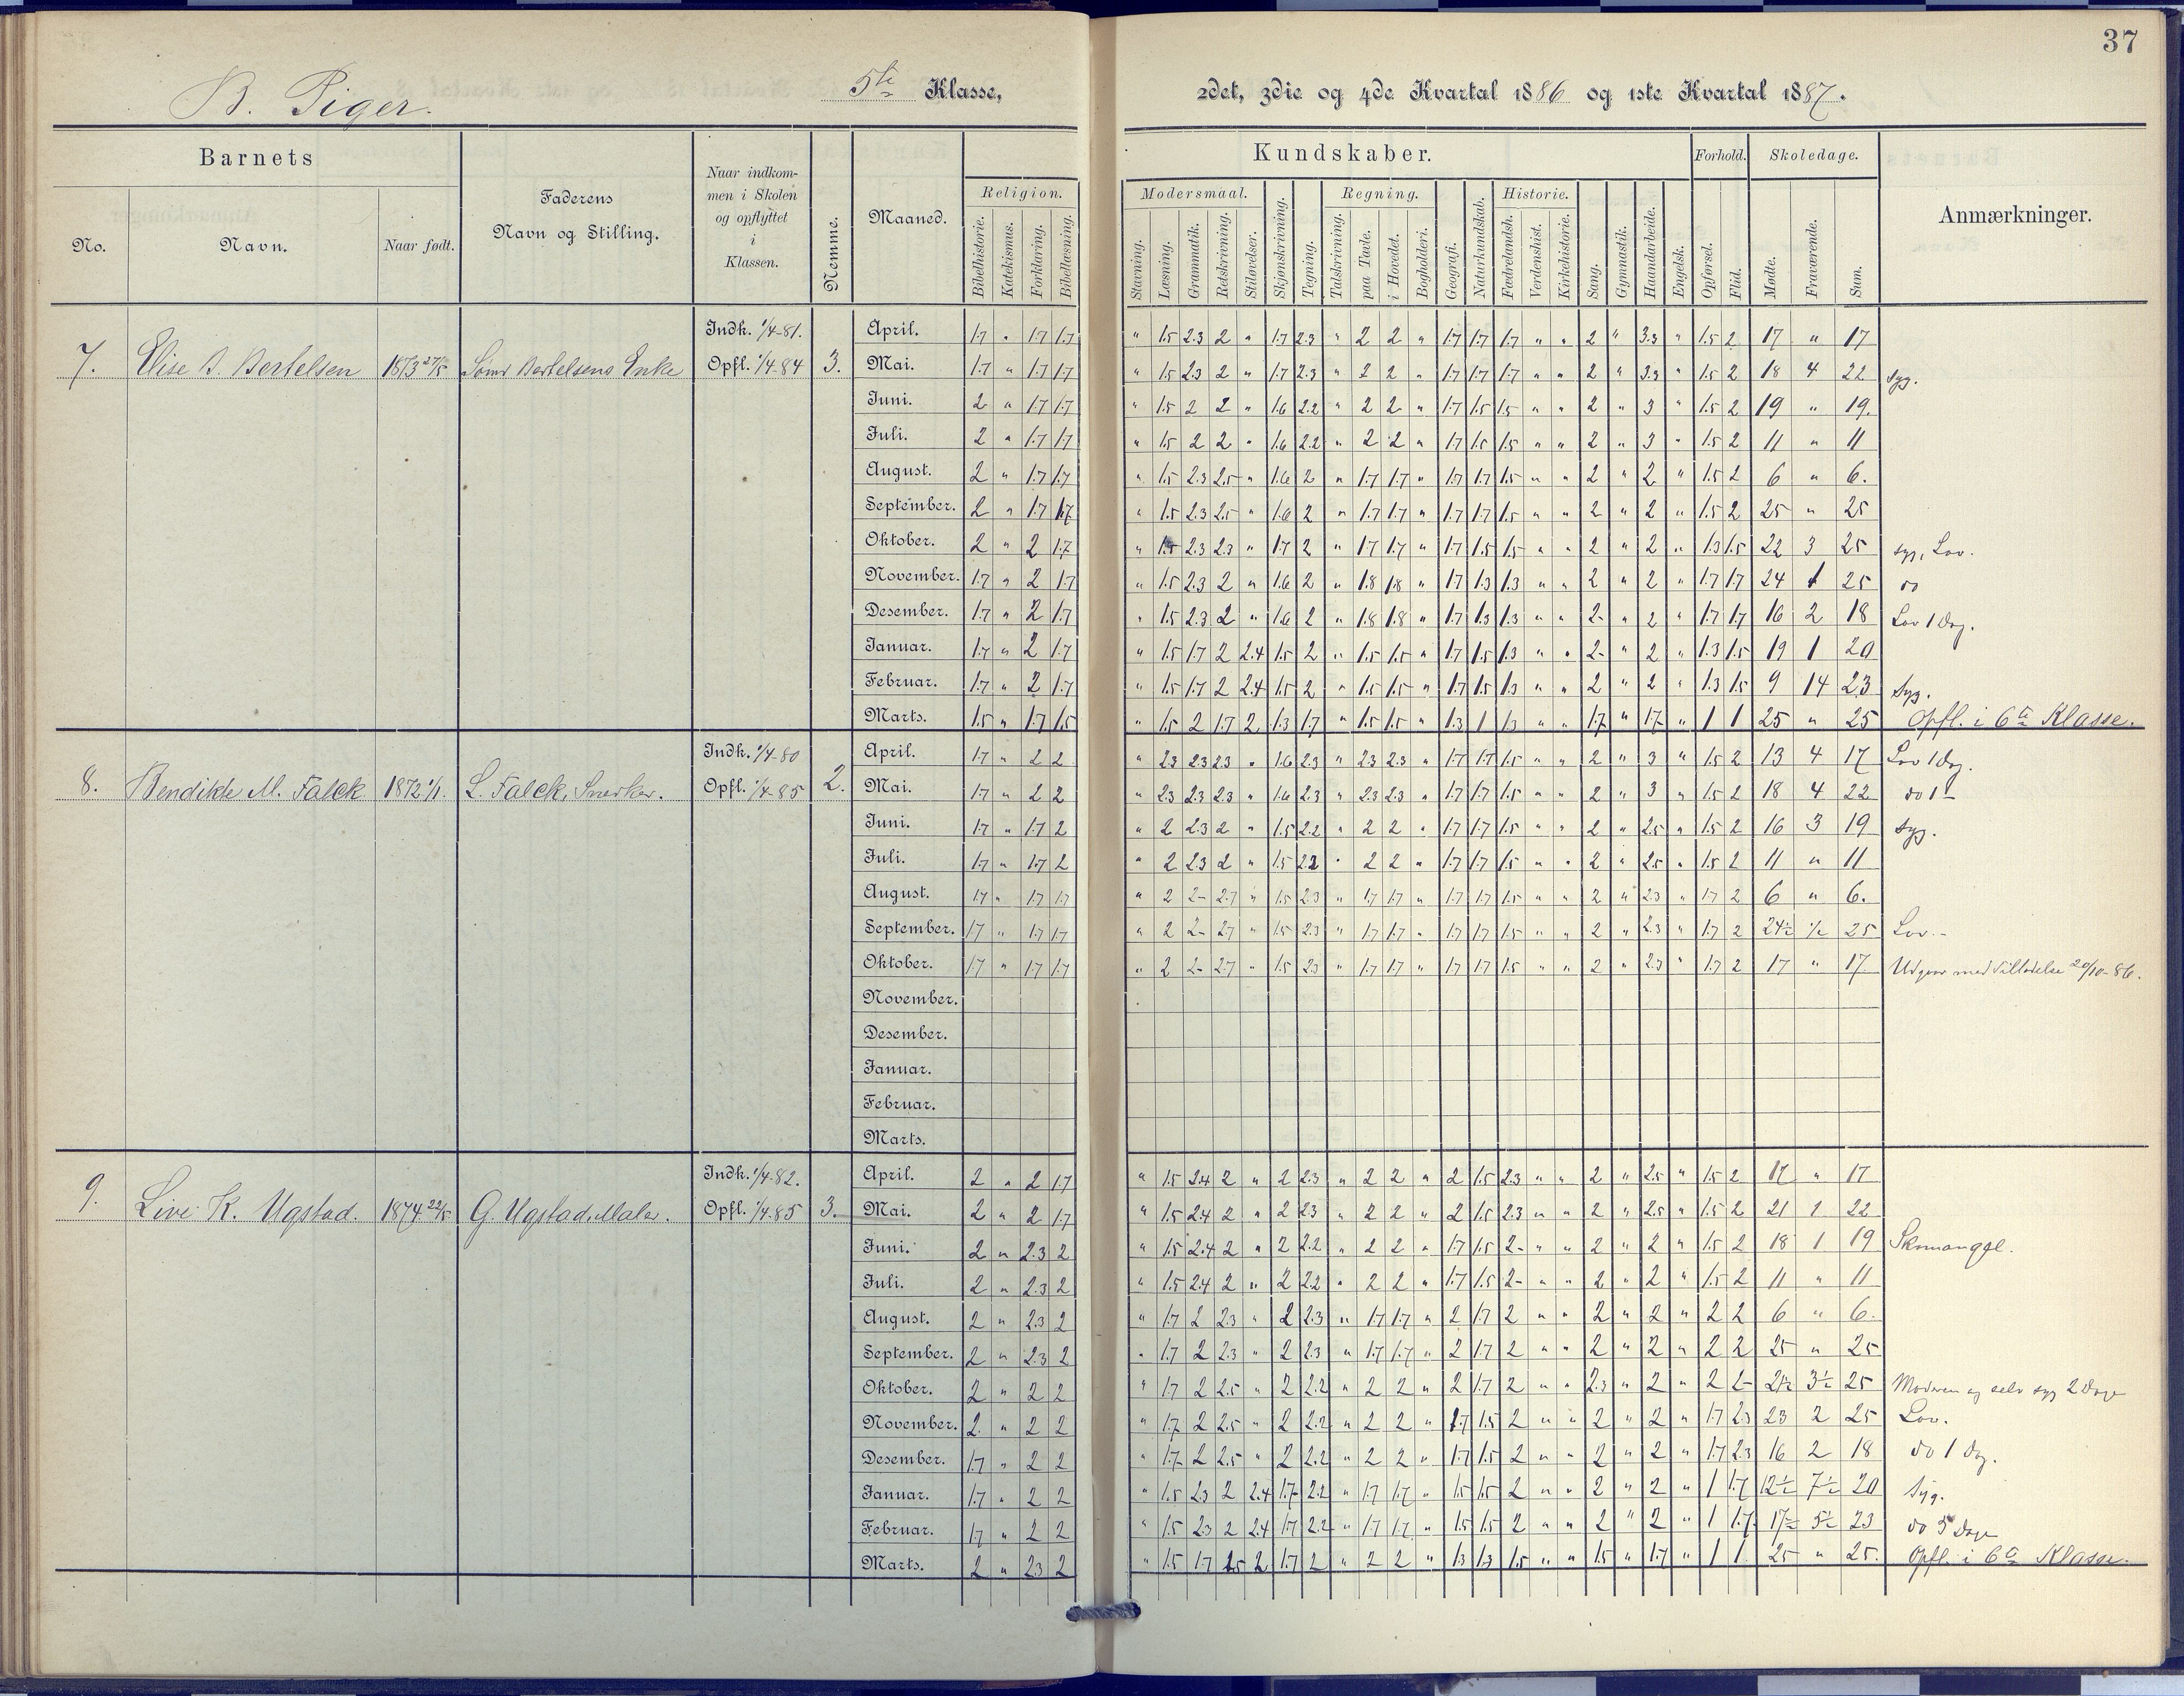 37
B. Piger.
5te Klasse,
2det, 3die og 4de Kvartal 1886 og 1ste Kvartal 1887.
Barnets
No.
Navn.
Naar født.
Faderens
Navn og Stilling.
Naar indkom-
men i Skolen
og opflyttet
i
Klassen.
Nemme.
Maaned.
Kundskaber.
Religion.
Bibelhistorie.
Katekismus.
Forklaring.
Bibellæsning.
Modersmaal.
Stavning.
Læsning.
Grammatik.
Retskrivning.
Stiløvelser.
Skjønskrivning.
Tegning.
Regning.
Talskrivning.
paa Tavle.
i Hovedet.
Bogholderi.
Geografi.
Naturkundskab.
Historie.
Fædrelandsh.
Verdenshist.
Kirkehistorie.
Sang.
Gymnastik.
Haandarbeide.
Engelsk.
Forhold.
Opførsel.
Flid.
Skoledage.
Mødte.
Fraværende.
Sum.
Anmærkninger.
7. Elise B. Bertelsen 1873 Bertelsens Enke
Indk. 1/4-81.
Opfl. 1/4-84 3.
April. 1.7 " 1.7 1.7 " 1.5 2.3 2 " 1.7 2.3 " 2 2 " 1.7 1.7 1.7 " " 2 " 3.3 " 1.5 2 17 " 17
Mai. 1.7 " 1.7 1.7 " 1.5 2.3 2 " 1.7 2.3 " 2 2 " 1.7 1.7 1.7 " " 2 " 3.3 " 1.5 2 18 4 22 syg.
Juni. 2 " 1.7 1.7 " 1.5 2 2 " 1.6 2.2 " 2 2 " 1.7 1.5 1.5 " " 2 " 3 " 1.5 2 19 " 19.
Juli. 2 " 1.7 1.7 " 1.5 2 2 " 1.6 2.2 " 2 2 " 1.7 1.5 1.5 " " 2 " 3 " 1.5 2 11 " 11
August. 2 " 1.7 1.7 " 1.5 2.3 2.5 " 1.6 2 " 1.7 1.7 " 1.7 1.7 1.5 " " 2 " 2 " 1.5 2 6 " 6.
September. 2 " 1.7 1.7 " 1.5 2.3 2.5 " 1.6 2 " 1.7 1.7 " 1.7 1.7 1.5 " " 2 " 2 " 1.5 2 25 " 25
Oktober. 2 " 2 1.7 " 1.5 2.3 2.3 " 1.7 2 " 1.7 1.7 " 1.7 1.5 1.5 " " 2 " 2 " 1.3 1.5 22 3 25 syg, Lov.
November. 1.7 " 2 1.7 " 1.5 2.3 2 " 1.6 2 " 1.8 1.8 " 1.7 1.3 1.3 " " 2 " 2 " 1.7 1.7 24 1 25 do
Desember. 1.7 " 2 1.7 " 1.5 2.3 2 " 1.6 2 " 1.8 1.8 " 1.7 1.3 1.3 " " 2 " 2 " 1.7 1.7 16 2 18 Lov 1 Dag.
Januar. 1.7 " 2 1.7 " 1.5 1.7 2 2.4 1.5 2 " 1.5 1.5 " 1.7 1.5 1.3 " " 2 " 2 " 1.3 1.5 19 1 20
Februar. 1.7 " 2 1.7 " 1.5 1.7 2 2.4 1.5 2 " 1.5 1.5 " 1.7 1.5 1.3 " " 2 " 2 " 1.3 1.5 9 14 23 Syg.
Marts. 1.5 " 1.7 1.5 " 1.5 2 1.7 2 1.3 1.7 " 1.5 1.5 " 1.3 1 1.3 " " 1.7 " 1.7 " 1 1 25 " 25 Opfl. i 6te Klasse.
8. Bendikte M. Falck 1872 1/1. L. Falck, Snerker.
Indk. 1/4-80
Opfl. 1/4-85 2.
April. 1.7 " 2 2 " 2.3 2.3 2.3 " 1.6 2.3 " 2.3 2.3 " 1.7 1.7 1.5 " " 2 " 3 " 1.5 2 13 4 17 Lov 1 Dag.
Mai. 1.7 " 2 2 " 2.3 2.3 2.3 " 1.6 2.3 " 2.3 2.3 " 1.7 1.7 1.5 " " 2 " 3 " 1.5 2 18 4 22 do 1 -
Juni. 1.7 " 1.7 2 " 2 2.3 2 " 1.5 2.2 " 2 2 " 1.7 1.7 1.5 " " 2 " 2.5 " 1.5 2 16 3 19 syg.
Juli. 1.7 " 1.7 2 " 2 2.3 2 " 1.5 2.2 " 2 2 " 1.7 1.7 1.5 " " 2 " 2.5 " 1.5 2 11 " 11
August. 1.7 " 1.7 1.7 " 2 2 2.7 " 1.5 2.3 " 1.7 1.7 " 1.7 1.7 1.5 " " 2 " 2.3 " 1.7 2 6 " 6.
September. 1.7 " 1.7 1.7 " 2 2 2.7 " 1.5 2.3 " 1.7 1.7 " 1.7 1.7 1.5 " " 2 " 2.3 " 1.7 2 24½ ½ 25 Lov.
Oktober. 1.7 " 1.7 1.7 " 2 2 2.7 " 1.5 2.3 " 1.7 1.7 " 1.7 1.7 1.5 " " 2 " 2.3 " 1.7 2 17 " 17 med Tilladelse 20/10-86.
November.
Desember.
Januar.
Februar.
Marts.
9. Live K. Ugstad. 1874 22/5 G. Ugstad, Maler.
Indk. 1/4-82.
Opfl. 1/4-85 3.
April. 2 " 2 1.7 " 1.5 2.4 2 " 2 2.3 " 2 2 " 2 1.5 2.3 " " 2 " 2.5 " 1.5 2 17 " 17
Mai. 2 " 2 1.7 " 1.5 2.4 2 " 2 2.3 " 2 2 " 2 1.5 2.3 " " 2 " 2.5 " 1.5 2 21 1 22
Juni. 2 " 2.3 2 " 1.5 2.4 2 " 2 2.2 " 2 2 " 1.7 1.5 2 " " 2 " 2 " 1.5 2 18 1 19 Skomangel.
Juli. 2 " 2.3 2 " 1.5 2.4 2 " 2 2.2 " 2 2 " 1.7 1.5 2 " " 2 " 2 " 1.5 2 11 " 11
August. 2 " 2.3 2 " 1.7 2 2.3 " 2 2.3 " 1.7 1.7 " 2 1.7 2 " " 2 " 2 " 2 2 6 " 6.
September. 2 " 2.3 2 " 1.7 2 2.3 " 2 2.3 " 1.7 1.7 " 2 1.7 2 " " 2 " 2 " 2 2 25 " 25
Oktober. 2 " 2 2 " 1.7 2 2.5 " 2 2.2 " 2 2 " 2 1.7 2 " " 2.3 " 2 " 2 2 21½ 3½ 25 Moderen og selv syg 2 Dage
November. 2 " 2 2 " 1.7 2 2.5 " 2 2.2 " 2 2 " 1.7 1.5 2 " " 2 " 2 " 1.7 2.3 23 2 25 Lov.
Desember. 1.7 " 2 2 " 1.7 2 2.5 " 2 2.2 " 2 2 " 1.7 1.5 2 " " 2 " 2 " 1.7 2.3 16 2 18 do 1 Dag.
Januar. 1.7 " 2 2 " 1.5 2.3 2 2.4 1.7 2.2 " 1.7 1.7 " 1.5 1.5 2 " " 2 " 2 " 1 1.7 12½ 7½ 20 Syg.
Februar. 1.7 " 2 2 " 1.5 2.3 2 2.4 1.7 2.2 " 1.7 1.7 " 1.5 1.5 2 " " 2 " 2 " 1 1.7 17½ 5½ 23 do 5 Dage
Marts. 2 " 2.3 2 " 1.5 1.7 2.5 2 1.7 2 " 2 2 " 1.3 1.3 1.5 " " 1.5 " 1.7 " 1 1 25 " 25. Opfl. i 6te Klasse.